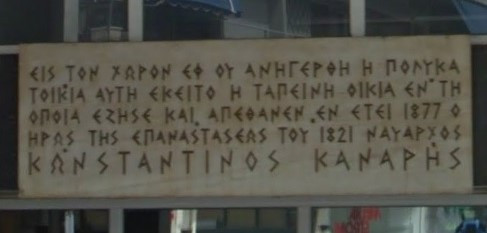 ΕΙΣ ΤΟΝ ΧΩΡΟΝ ΕΦ ΟΥ ΑΝΗΓΕΡΘΗ Η ΠΟΛΥΚΑ
ΤΟΙΚΙΑ ΑΥΤΗ ΕΚΕΙΤΟ Η ΤΑΠΕΙΝΗ ΟΙΚΙΑ ΕΝ ΤΗ
ΟΠΟΙΑ ΕΖΗΣΕ ΚΑΙ ΑΠΕΘΑΝΕΝ ΕΝ ΕΤΕΙ 1877 Ο
ΗΡΩΣ ΤΗΣ ΕΠΑΝΑΣΤΑΣΕΩΣ ΤΟΥ 1821 ΝΑΥΑΡΧΟΣ
ΚΩΝΣΤΑΝΤΙΝΟΣ ΚΑΝΑΡΗΣ